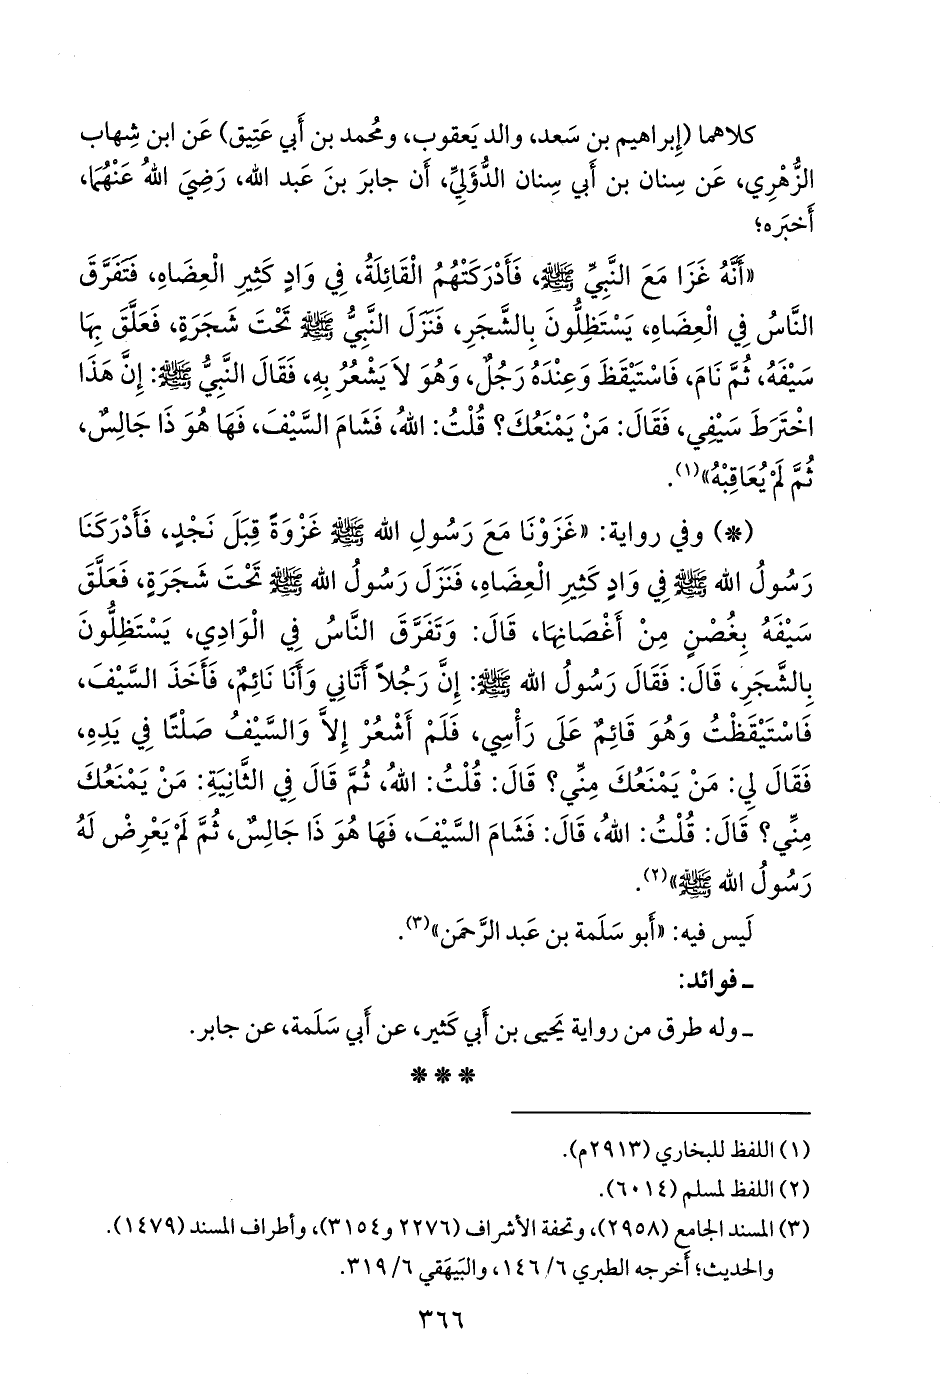 كلاهما (إِبراهيم بن سَعد، والد يَعقوب، ومُحمد بن أَبي عَتِيق) عَن ابن شِهاب
الزُّهْري، عَن سِنان بن أَبي سِنان الدُّؤَليِّ، أَن جابرَ بنَ عَبد الله، رَضِيَ اللهُ عَنْهُمَا،
أَخبَره؛
«أَنَّهُ غَزَا مَعَ النَّبِيِّ ﷺ، فَأَدْرَكَتْهُمُ الْقَائِلَةُ، فِي وَادٍ كَثِيرِ الْعِضَاهِ، فَتَفَرَّقَ
النَّاسُ فِي الْعِضَاهِ، يَسْتَظِلُّونَ بِالشَّجَرِ، فَنَزَلَ النَّبِيُّ ﷺ تَحْتَ شَجَرَةٍ، فَعَلَّقَ بِهَا
سَيْفَهُ، ثُمَّ نَامَ، فَاسْتَيْقَظَ وَعِنْدَهُ رَجُلٌ، وَهُوَ لاَ يَشْعُرُ بِهِ، فَقَالَ النَّبِيُّ ﷺ: إِنَّ هَذَا
اخْتَرَطَ سَيْفِي، فَقَالَ: مَنْ يَمْنَعُكَ؟ قُلْتُ: اللهُ، فَشَامَ السَّيْفَ، فَهَا هُوَ ذَا جَالِسٌ،
ثُمَّ لَمْ يُعَاقِبْهُ»(١).
(*) وفي رواية: «غَزَوْنَا مَعَ رَسُولِ الله ﷺ غَزْوَةً قِبَلَ نَجْدٍ، فَأَدْرَكَنَا
رَسُولُ الله ﷺ فِي وَادٍ كَثِيرِ الْعِضَاهِ، فَنَزَلَ رَسُولُ الله ﷺ تَحْتَ شَجَرَةٍ، فَعَلَّقَ
سَيْفَهُ بِغُصْنٍ مِنْ أَغْصَانِهَا، قَالَ: وَتَفَرَّقَ النَّاسُ فِي الْوَادِي، يَسْتَظِلُّونَ
بِالشَّجَرِ، قَالَ: فَقَالَ رَسُولُ الله ﷺ: إِنَّ رَجُلاً أَتَانِي وَأَنَا نَائِمٌ، فَأَخَذَ السَّيْفَ،
فَاسْتَيْقَظْتُ وَهُوَ قَائِمٌ عَلَى رَأْسِي، فَلَمْ أَشْعُرْ إِلاَّ وَالسَّيْفُ صَلْتًا فِي يَدِهِ،
فَقَالَ لِي: مَنْ يَمْنَعُكَ مِنِّي؟ قَالَ: قُلْتُ: اللهُ، ثُمَّ قَالَ فِي الثَّانِيَةِ: مَنْ يَمْنَعُكَ
مِنِّي؟ قَالَ: قُلْتُ: اللهُ، قَالَ: فَشَامَ السَّيْفَ، فَهَا هُوَ ذَا جَالِسٌ، ثُمَّ لَمْ يَعْرِضْ لَهُ
رَسُولُ الله ﷺ»(٢).
لَيس فيه: «أَبو سَلَمة بن عَبد الرَّحمَن»(٣).
ـ فوائد:
ـ وله طرق من رواية يَحيى بن أَبي كَثير، عن أَبي سَلَمة، عن جابر.
* * *
(١) اللفظ للبخاري (٢٩١٣م).
(٢) اللفظ لمسلم (٦٠١٤).
(٣) المسند الجامع (٢٩٥٨)، وتحفة الأشراف (٢٢٧٦ و٣١٥٤)، وأطراف المسند (١٤٧٩).
والحديث؛ أخرجه الطبري ٦/ ١٤٦، والبَيهَقي ٦/ ٣١٩.
٣٦٦